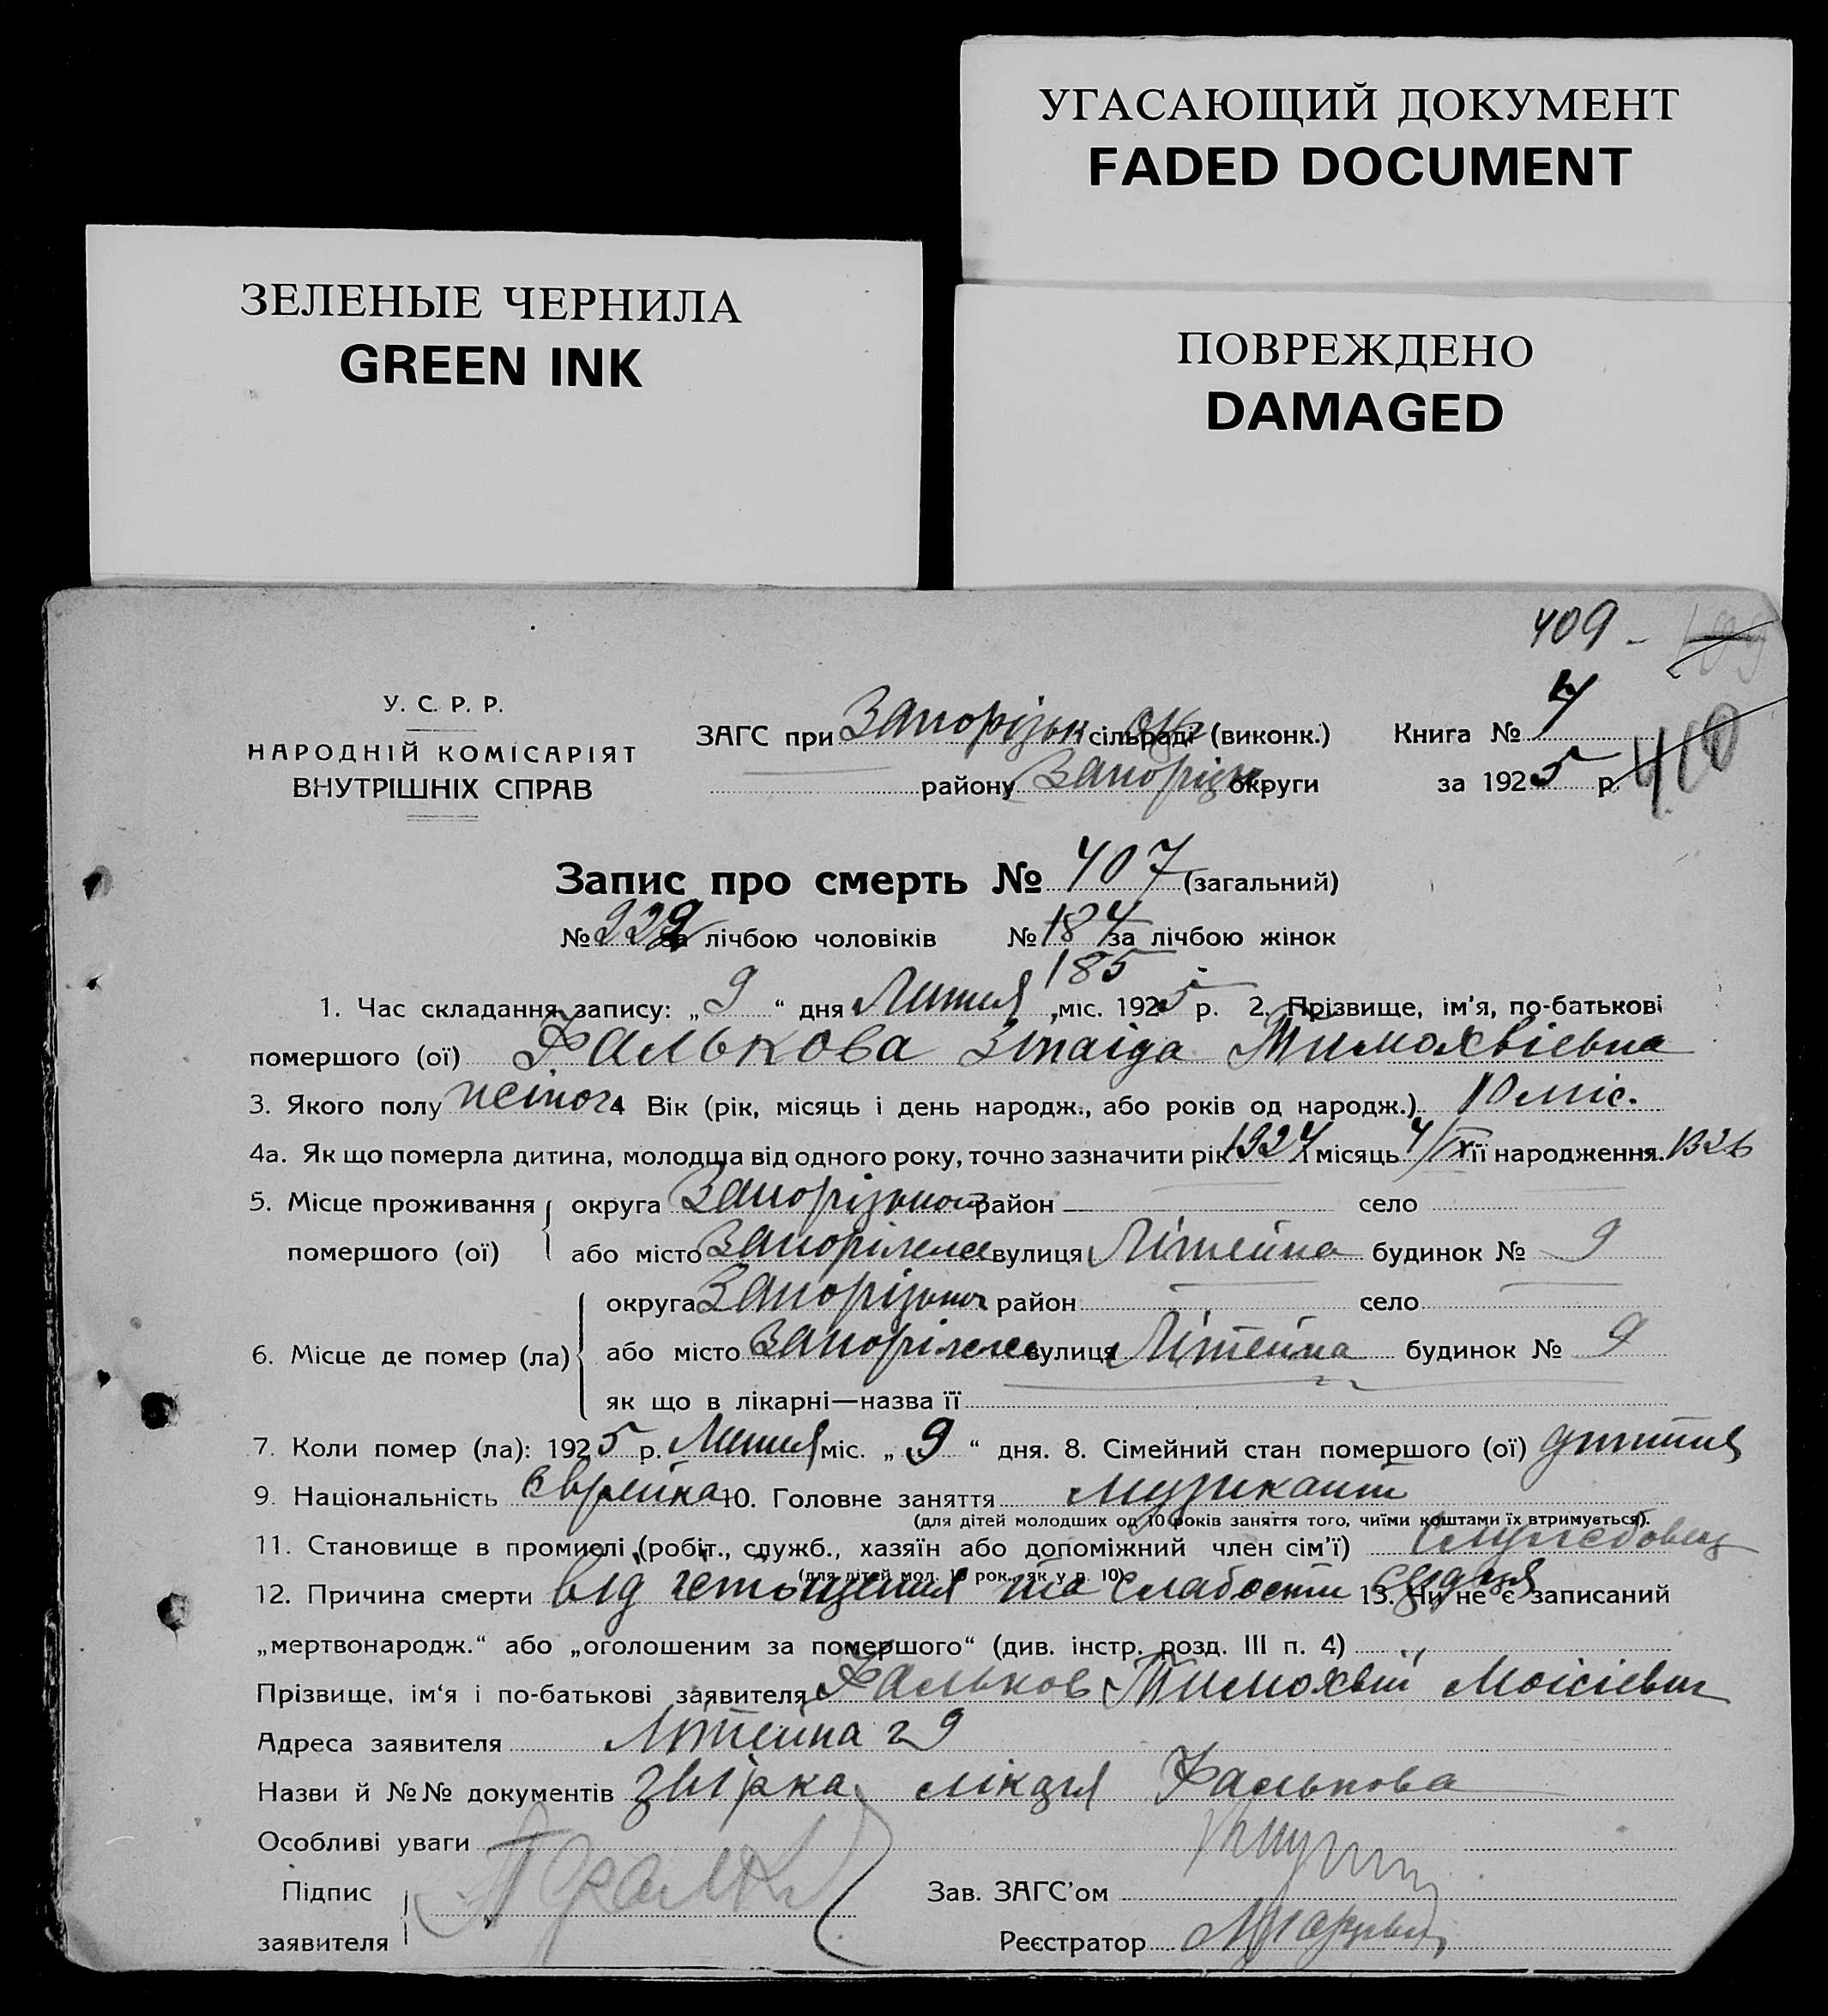 УГАСАЮЩИЙ ДОКУМЕНТ
FADED DOCUMENT
ЗЕЛЕНЫЕ ЧЕРНИЛА
GREEN INK
ПОВРЕЖДЕНО
DAMAGED
409 -
У. С. Р. Р.
НАРОДНІЙ КОМІСАРІЯТ
ВНУТРІШНІХ СПРАВ
ЗАГС при Запорізьк сільраді (виконк.) Книга № 4
району Запорізьк округи за 1925 р. 410
Запис про смерть № 407 (загальний)
№ 222 за лічбою чоловіків № 184 за лічбою жінок
185
1. Час складання запису: „9“ дня Липня міс. 1925 р. 2. Прізвище, ім'я, по-батькові
помершого (ої) Фалькова Зінаіда Тимохвієвна
3. Якого полу жіноч 4 Вік (рік, місяць і день народж., або років од народж.) 10 міс.
4а. Як що померла дитина, молодша від одного року, точно зазначити рік 1924 і місяць 4/IX її народження.
5. Місце проживання округа Запорізької район село
помершого (ої) або місто Запоріжже вулиця Літейна будинок № 9
округа Запорізьк район село
6. Місце де помер (ла) або місто Запоріжже вулиця Літейна будинок № 9
як що в лікарні—назва її
7. Коли помер (ла): 1925 р. Липня міс. „9“ дня. 8. Сімейний стан помершого (ої) дитина
9. Національність Єврейка 10. Головне заняття музикант
(для дітей молодших од 10 років заняття того, чиїми коштами їх втримується).
11. Становище в промислі (робіт., служб., хазяїн або допоміжний член сім'ї) Службовець
(для дітей мол. 10 рок., як у п. 10).
12. Причина смерти від істощення та слабости серця 13. Чи не є записаний
„мертвонародж.“ або „оголошеним за помершого“ (див. інстр. розд. III п. 4)
Прізвище, ім'я і по-батькові заявителя Фальков Тимохвій Моісієвич
Адреса заявителя Літейна 9
Назви й №№ документів лікаря Фалькова
Особливі уваги
Підпис
заявителя
Зав. ЗАГС'ом
Реєстратор